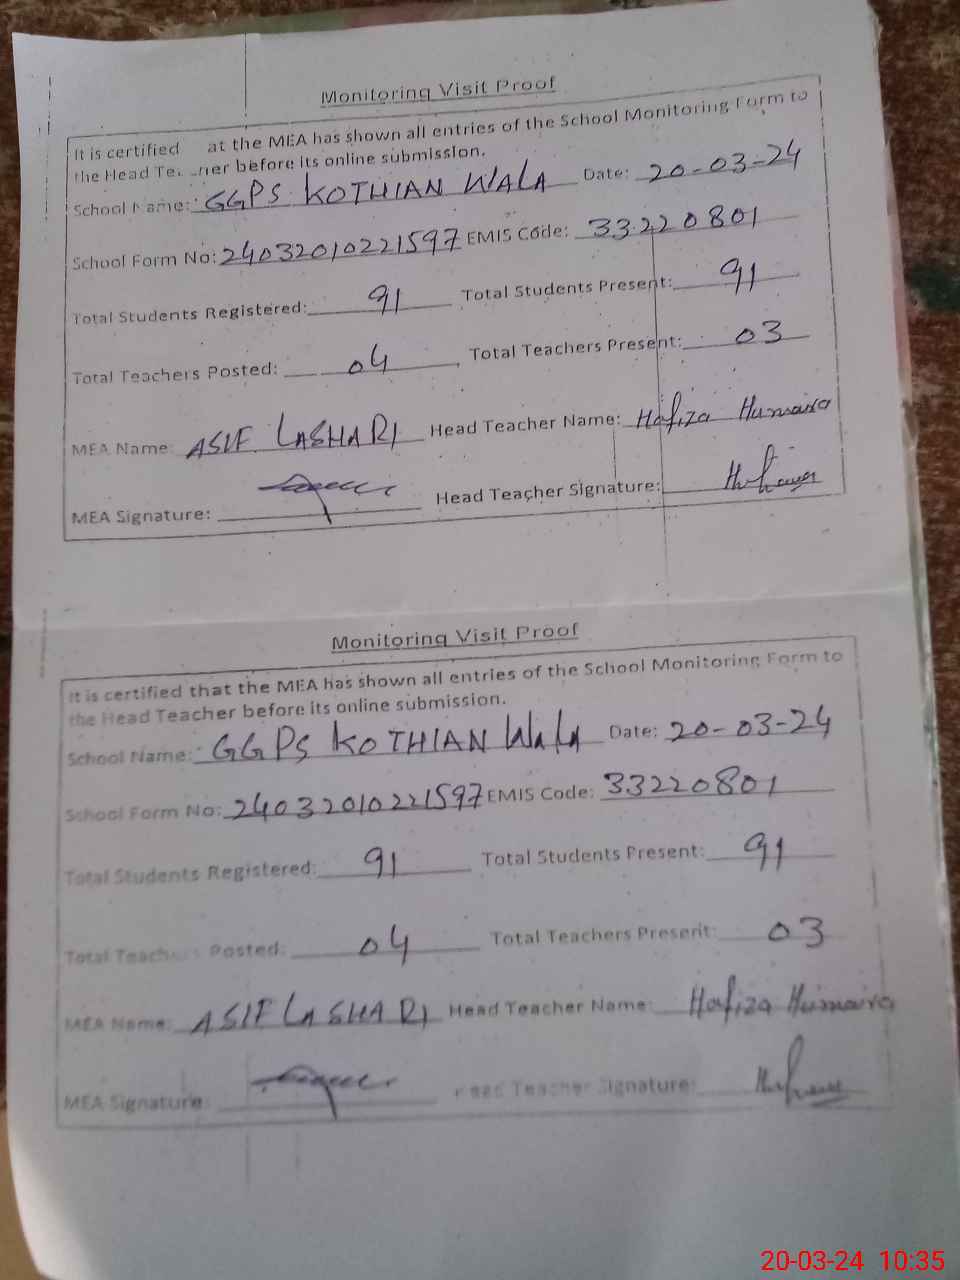 Monitoring Visit Proof
It is certified at the MEA has shown all entries of the School Monitoring Form to
the Head before its online submission.
School Name: GGPS KOTHIAN WALA Date: 20-03-24
School Form No: 24032010221597 EMIS Code: 33220801
Total Students Registered: 91 Total Students Present: 91
Total Teachers Posted: 04 Total Teachers Present: 03
MEA Name: ASIF LASHARI Head Teacher Name: Hafiza Humaira
MEA Signature: Head Teacher Signature:
Monitoring Visit Proof
It is certified that the MEA has shown all entries of the School Monitoring Form to
the Head Teacher before its online submission.
School Name: GGPS KOTHIAN Wala Date: 20-03-24
School Form No: 24032010221597 EMIS Code: 33220801
Total Students Registered: 91 Total Students Present: 91
Total Teachers Posted: 04 Total Teachers Present: 03
MEA Name: ASIF LASHARI Head Teacher Name: Hafiza Humaira
MEA Signature: Head Teacher Signature:
20-03-24 10:35